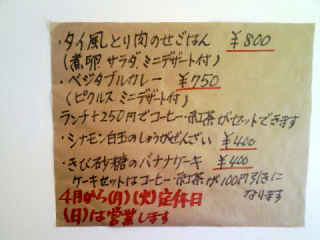 ・タイ風とり肉のせごはん ¥800
(煮卵 サラダ ミニデザート付)
・ベジタブルカレー ¥750
(ピクルス ミニデザート付)
ランチ+250円でコーヒー・紅茶がセットできます
・シナモン白玉のしょうがぜんざい ¥400
・きび砂糖のバナナケーキ ¥400
ケーキセットはコーヒー・紅茶が100円引きに
なります
4月から(月)(火)定休日
(日)は営業します